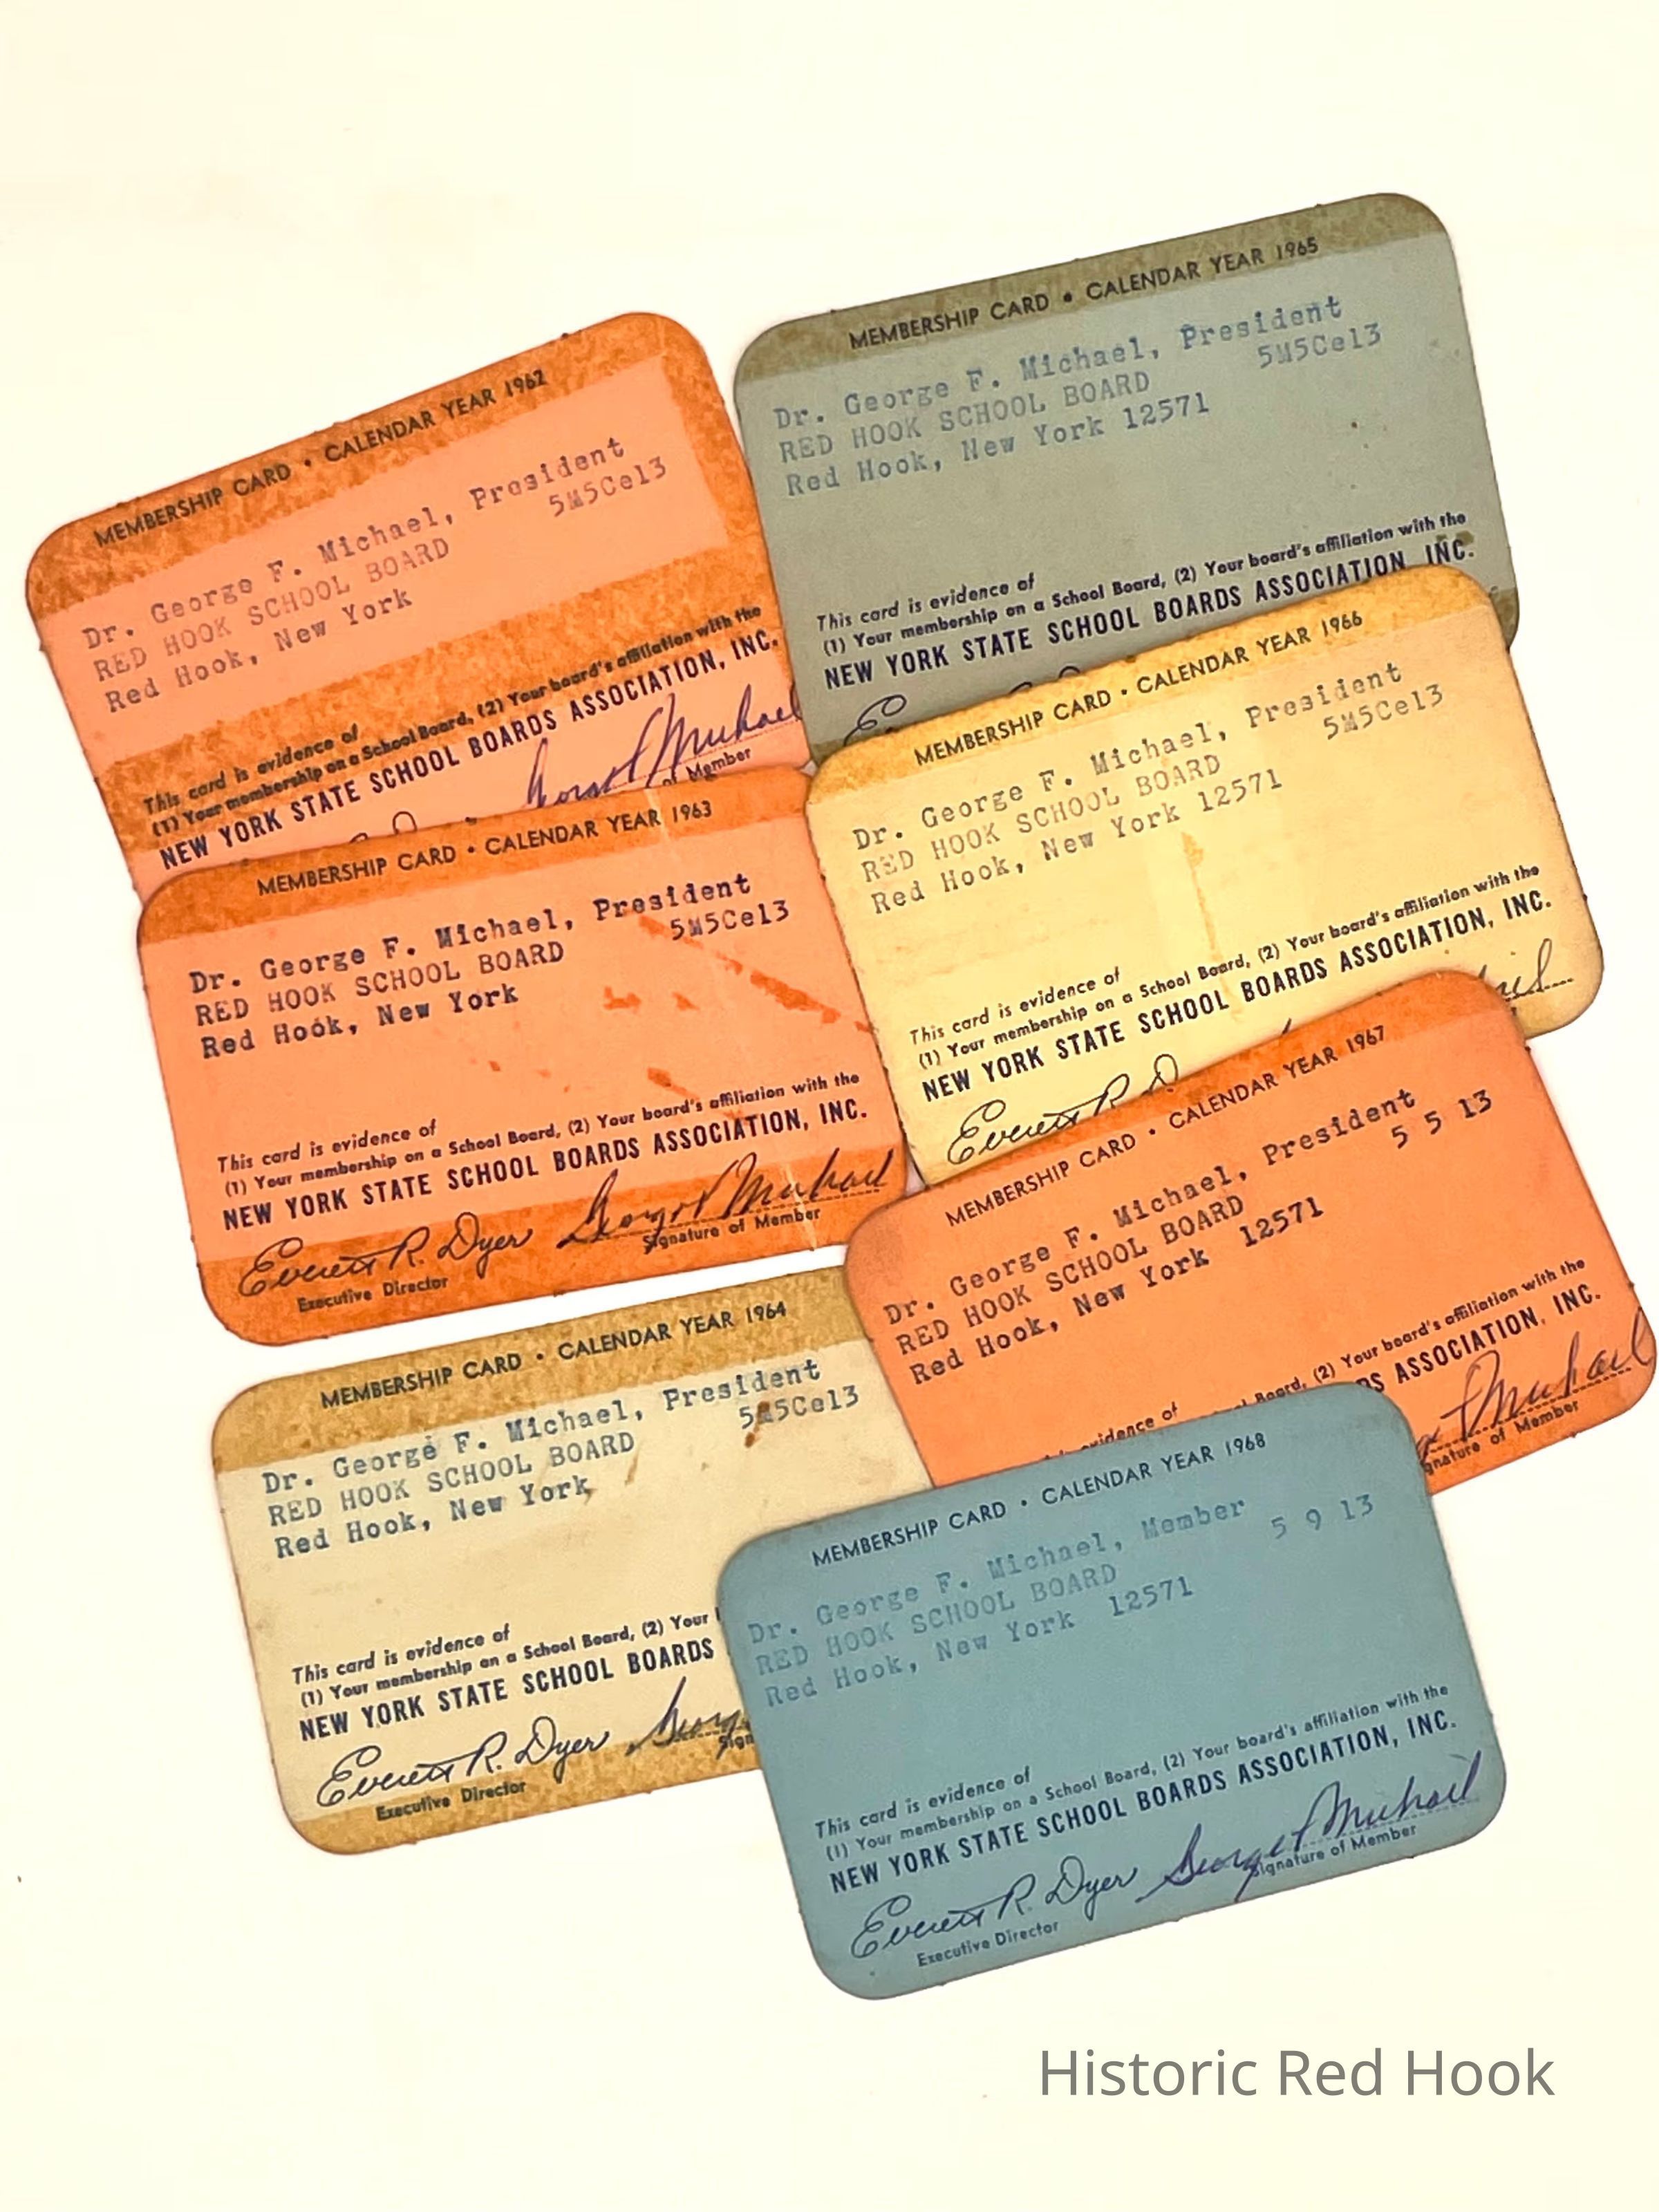 MEMBERSHIP CARD • CALENDAR YEAR 1962
Dr. George F. Michael, President
5M5Ce13
RED HOOK SCHOOL BOARD
Red Hook, New York
This card is evidence of
(1) Your membership on a School Board, (2) Your board's affiliation with the
NEW YORK STATE SCHOOL BOARDS ASSOCIATION, INC.
George F Michael
of Member
MEMBERSHIP CARD • CALENDAR YEAR 1963
Dr. George F. Michael, President
5M5Ce13
RED HOOK SCHOOL BOARD
Red Hook, New York
This card is evidence of
(1) Your membership on a School Board, (2) Your board's affiliation with the
NEW YORK STATE SCHOOL BOARDS ASSOCIATION, INC.
Everett R. Dyer George F Michael
Executive Director Signature of Member
MEMBERSHIP CARD • CALENDAR YEAR 1964
Dr. George F. Michael, President
5M5Ce13
RED HOOK SCHOOL BOARD
Red Hook, New York
This card is evidence of
(1) Your membership on a School Board, (2) Your
NEW YORK STATE SCHOOL BOARDS
Everett R. Dyer Georg
Executive Director Sign
MEMBERSHIP CARD • CALENDAR YEAR 1965
Dr. George F. Michael, President
5M5Ce13
RED HOOK SCHOOL BOARD
Red Hook, New York 12571
This card is evidence of
(1) Your membership on a School Board, (2) Your board's affiliation with the
NEW YORK STATE SCHOOL BOARDS ASSOCIATION, INC.
MEMBERSHIP CARD • CALENDAR YEAR 1966
Dr. George F. Michael, President
5M5Ce13
RED HOOK SCHOOL BOARD
Red Hook, New York 12571
This card is evidence of
(1) Your membership on a School Board, (2) Your board's affiliation with the
NEW YORK STATE SCHOOL BOARDS ASSOCIATION, INC.
Everett R. D
MEMBERSHIP CARD • CALENDAR YEAR 1967
Dr. George F. Michael, President
5 5 13
RED HOOK SCHOOL BOARD
Red Hook, New York 12571
evidence of
Board, (2) Your board's affiliation with the
DS ASSOCIATION, INC.
Michael
gnature of Member
MEMBERSHIP CARD • CALENDAR YEAR 1968
Dr. George F. Michael, Member
5 9 13
RED HOOK SCHOOL BOARD
Red Hook, New York 12571
This card is evidence of
(1) Your membership on a School Board, (2) Your board's affiliation with the
NEW YORK STATE SCHOOL BOARDS ASSOCIATION, INC.
Everett R. Dyer George F Michael
Executive Director Signature of Member
Historic Red Hook